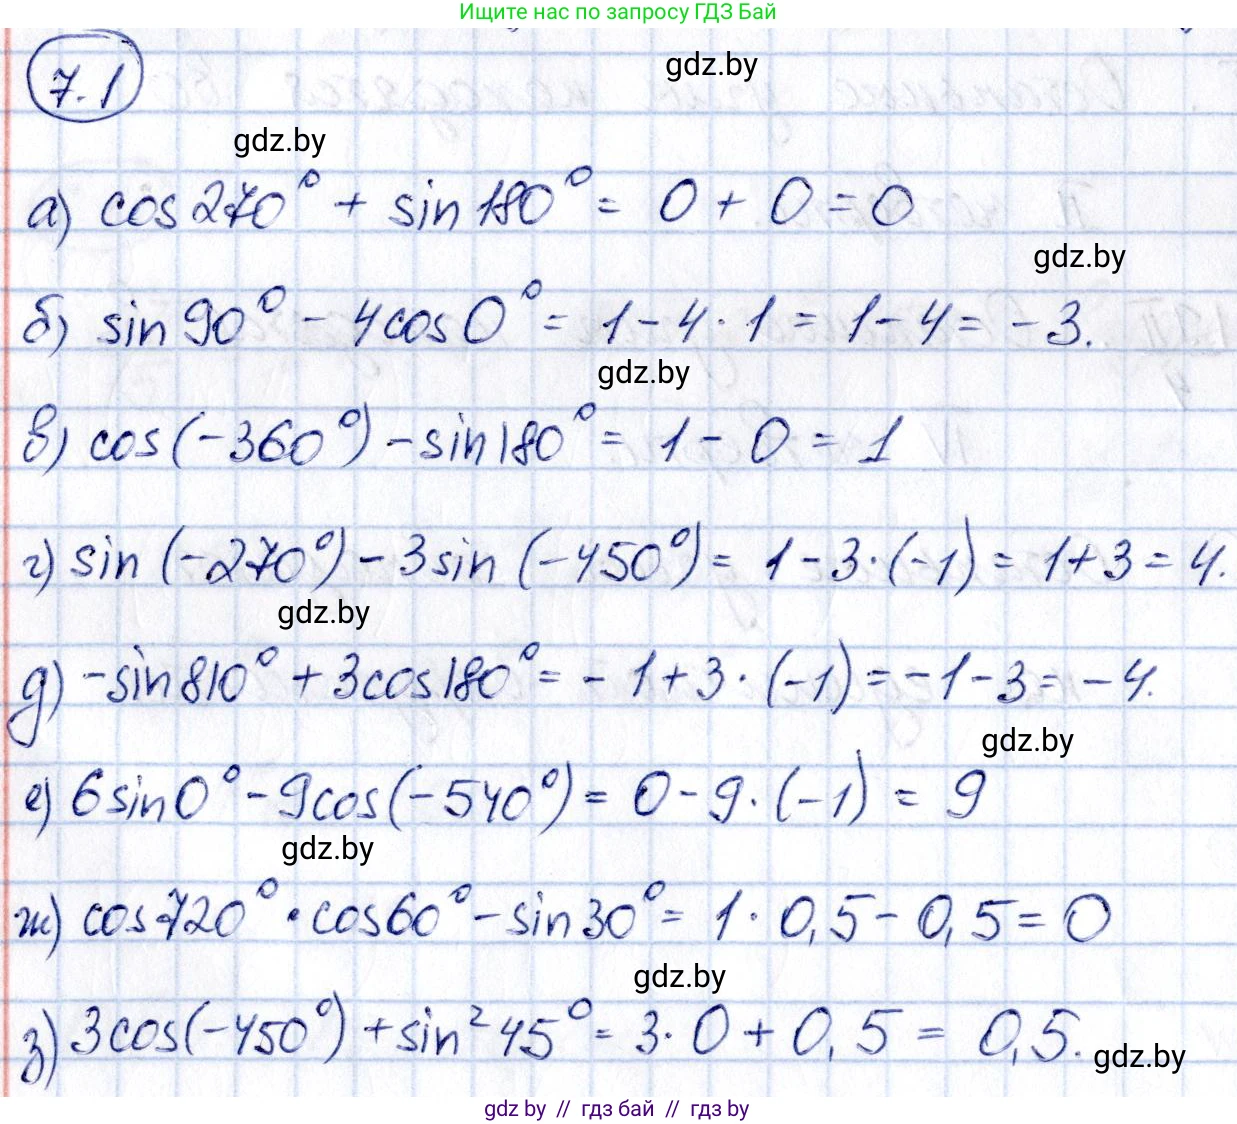 Ищите нас по запросу ГДЗ Бай
7.1
gdz.by
gdz.by
а) cos 270° + sin 180° = 0 + 0 = 0
gdz.by
б) sin 90° - 4cos 0° = 1 - 4 · 1 = 1 - 4 = -3.
gdz.by
в) cos(-360°) - sin 180° = 1 - 0 = 1
г) sin(-270°) - 3sin(-450°) = 1 - 3·(-1) = 1+3 = 4.
gdz.by
д) -sin 810° + 3cos 180° = -1 + 3 · (-1) = -1 - 3 = -4.
gdz.by
е) 6sin 0° - 9cos(-540°) = 0 - 9·(-1) = 9
gdz.by
ж) cos 720° · cos 60° - sin 30° = 1 · 0,5 - 0,5 = 0
gdz.by
з) 3cos(-450°) + sin² 45° = 3·0 + 0,5 = 0,5.
gdz.by
gdz by // гдз бай // гдз by